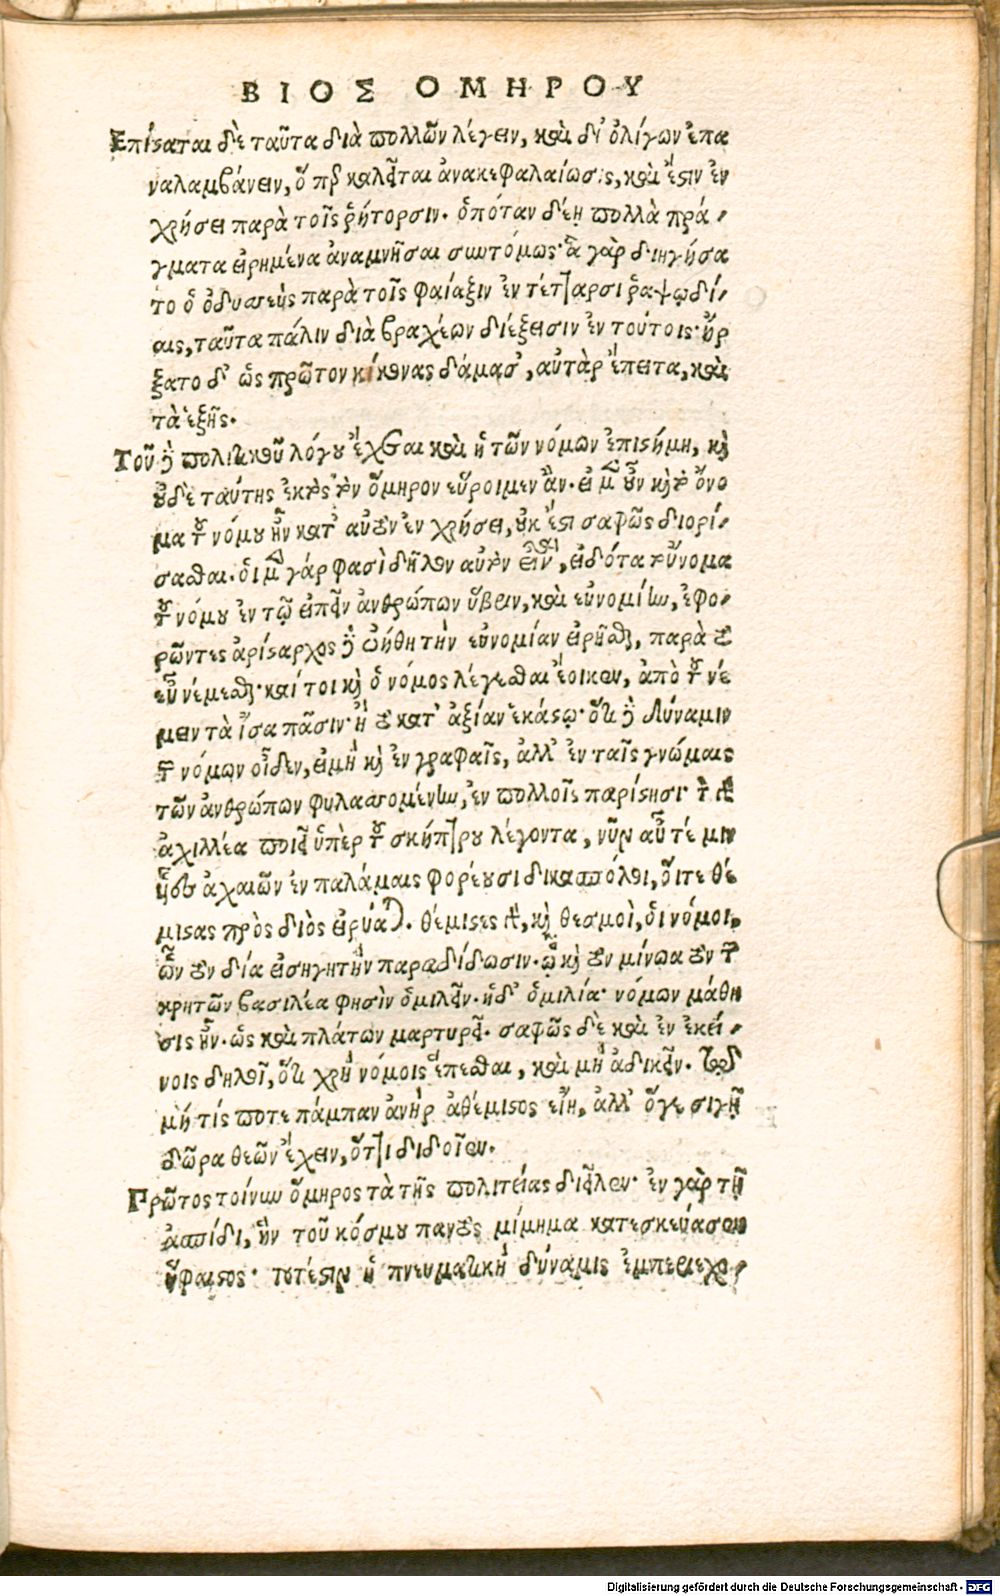 ΒΙΟΣ ΟΜΗΡΟΥ
Ἐπίσταται δὲ ταῦτα διὰ πολλῶν λέγειν, καὶ δι' ὀλίγων ἐπα
ναλαμβάνειν, ὅπερ καλεῖται ἀνακεφαλαίωσις, καὶ ἔστιν ἐν
χρήσει παρὰ τοῖς ῥήτορσιν. ὁπόταν δέῃ πολλὰ πρά-
γματα εἰρημένα ἀναμνῆσαι συντόμως· ἃ γὰρ διηγήσα
το ὁ ὀδυσσεὺς παρὰ τοῖς φαίαξιν ἐν τέτταρσι ῥαψῳδί-
αις, ταῦτα πάλιν διὰ βραχέων διέξεισιν ἐν τούτοις· ἤρ
ξατο δ' ὡς πρῶτον κίκονας δάμασ', αὐτὰρ ἔπειτα, καὶ
τὰ ἑξῆς.
Τοῦ δὲ πολιτικοῦ λόγου ἔχεται καὶ ἡ τῶν νόμων ἐπιστήμη, καὶ
οὐδὲ ταύτης ἐκτὸς τὸν ὅμηρον εὕροιμεν ἄν. εἰ μὲν οὖν καὶ τὸ ὄνο
μα τοῦ νόμου ἦν κατ' αὐτὸν ἐν χρήσει, οὐκ ἔστι σαφῶς διορί-
σασθαι. οἱ μὲν γάρ φασὶ δῆλον αὐτὸν εἶναι, εἰδότα τοὔνομα
τοῦ νόμου ἐν τῷ εἰπεῖν ἀνθρώπων ὕβριν, καὶ εὐνομίην, ἐφο-
ρῶντες ἀρίσταρχος δὲ ᾠήθη τὴν εὐνομίαν εἰρῆσθαι, παρὰ τὸ
εὖ νέμεσθαι· καίτοι καὶ ὁ νόμος λέγεσθαι ἔοικεν, ἀπὸ τοῦ νέ
μειν τὰ ἴσα πᾶσιν· ἢ τὸ κατ' ἀξίαν ἑκάστῳ· ὅτι δὲ δύναμιν
τῶν νόμων οἶδεν, εἰ μὴ καὶ ἐν γραφαῖς, ἀλλ' ἐν ταῖς γνώμαις
τῶν ἀνθρώπων φυλασσομένην, ἐν πολλοῖς παρίστησι· τὸν μὲν
ἀχιλλέα ποιεῖ ὑπὲρ τοῦ σκήπτρου λέγοντα, νῦν αὖτέ μιν
υἷες ἀχαιῶν ἐν παλάμαις φορέουσι δικασπόλοι, οἵτε θέ
μιστας πρὸς διὸς εἰρύαται. θέμιστες μὲν, καὶ θεσμοὶ, οἱ νόμοι,
ὧν τὸν δία εἰσηγητὴν παραδίδωσιν. ᾧ καὶ τὸν μίνωα τὸν τῶν
κρητῶν βασιλέα φησὶν ὁμιλεῖν. ἡ δ' ὁμιλία· νόμων μάθη
σις ἦν. ὡς καὶ πλάτων μαρτυρεῖ. σαφῶς δὲ καὶ ἐν ἐκεί-
νοις δηλοῖ, ὅτι χρὴ νόμοις ἕπεσθαι, καὶ μὴ ἀδικεῖν.
μή τίς ποτε πάμπαν ἀνὴρ ἀθέμιστος εἴη, ἀλλ' ὅγε σιγῇ
δῶρα θεῶν ἔχειν, ὅττι διδοῖεν.
Πρῶτος τοίνυν ὅμηρος τὰ τῆς πολιτείας διεῖλεν· ἐν γὰρ τῇ
ἀσπίδι, ἣν τοῦ κόσμου παντὸς μίμημα κατεσκεύασεν
ἥφαιστος· τουτέστιν ἡ πνευματικὴ δύναμις ἐμπεριεχο-
Digitalisierung gefördert durch die Deutsche Forschungsgemeinschaft - DFG